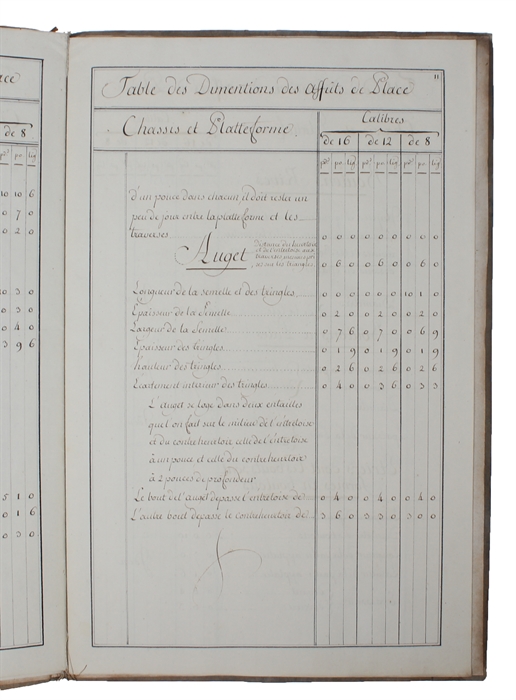 ace
de 8
pd. po. lig
10 10 6
0 7 0
0 2 0
10 3 0
0 3 0
0 4 0
3 9 6
5 1 0
0 1 6
0 3 0
11
Table des Dimentions des affuts de Place
Chassis et Platteforme.
Calibres
de 16 de 12 de 8
pd. po. lig pd. po. lig pd. po. lig
d'un pouce dans chacun il doit rester un
peu de jour entre la platteforme et les
traverses 0 0 0 0 0 0 0 0 0
Auget
0 6 0 0 6 0 0 6 0
Longueur de la semelle et des tringles 0 0 0 0 0 0 10 1 0
Epaisseur de la Semelle 0 2 0 0 2 0 0 2 0
Largeur de la Semelle 0 7 6 0 7 0 0 6 9
Epaisseur des tringles 0 1 9 0 1 9 0 1 9
hauteur des tringles 0 2 6 0 2 6 0 2 6
Ecartement interieur des tringles 0 4 0 0 3 6 0 3 3
L'auget se loge dans deux entailles
quel'on fait sur le milieu de l'entretoise
et du contreheurtoir celle de l'entretoise
à un pouce et celle du contreheurtoir
à 2 pouces de profondeur
Le bout de l'auget depasse l'entretoise de 0 4 0 0 4 0 0 4 0
L'autre bout depasse le contreheurtoir de 3 6 0 3 3 0 3 0 0